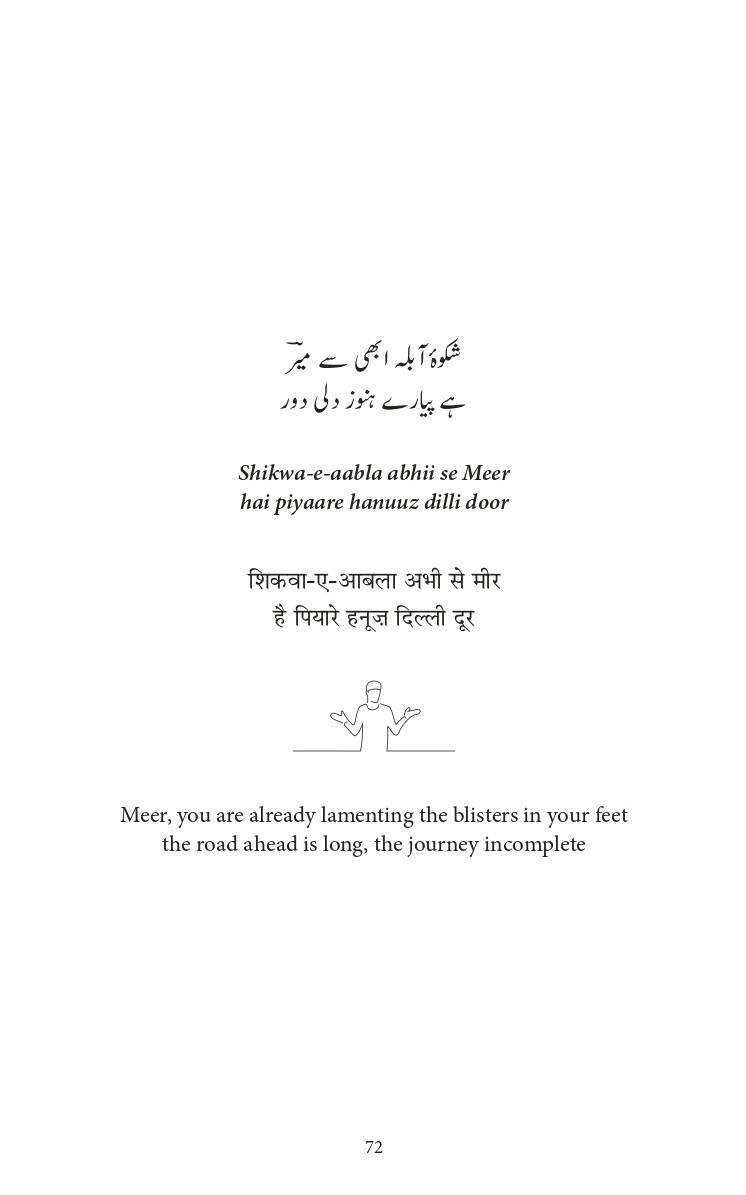 شکوۂ آبلہ ابھی سے میرؔ
ہے پیارے ہنوز دلی دور
Shikwa-e-aabla abhii se Meer
hai piyaare hanuuz dilli door
शिकवा-ए-आबला अभी से मीर
है पियारे हनूज़ दिल्ली दूर
Meer, you are already lamenting the blisters in your feet
the road ahead is long, the journey incomplete
72